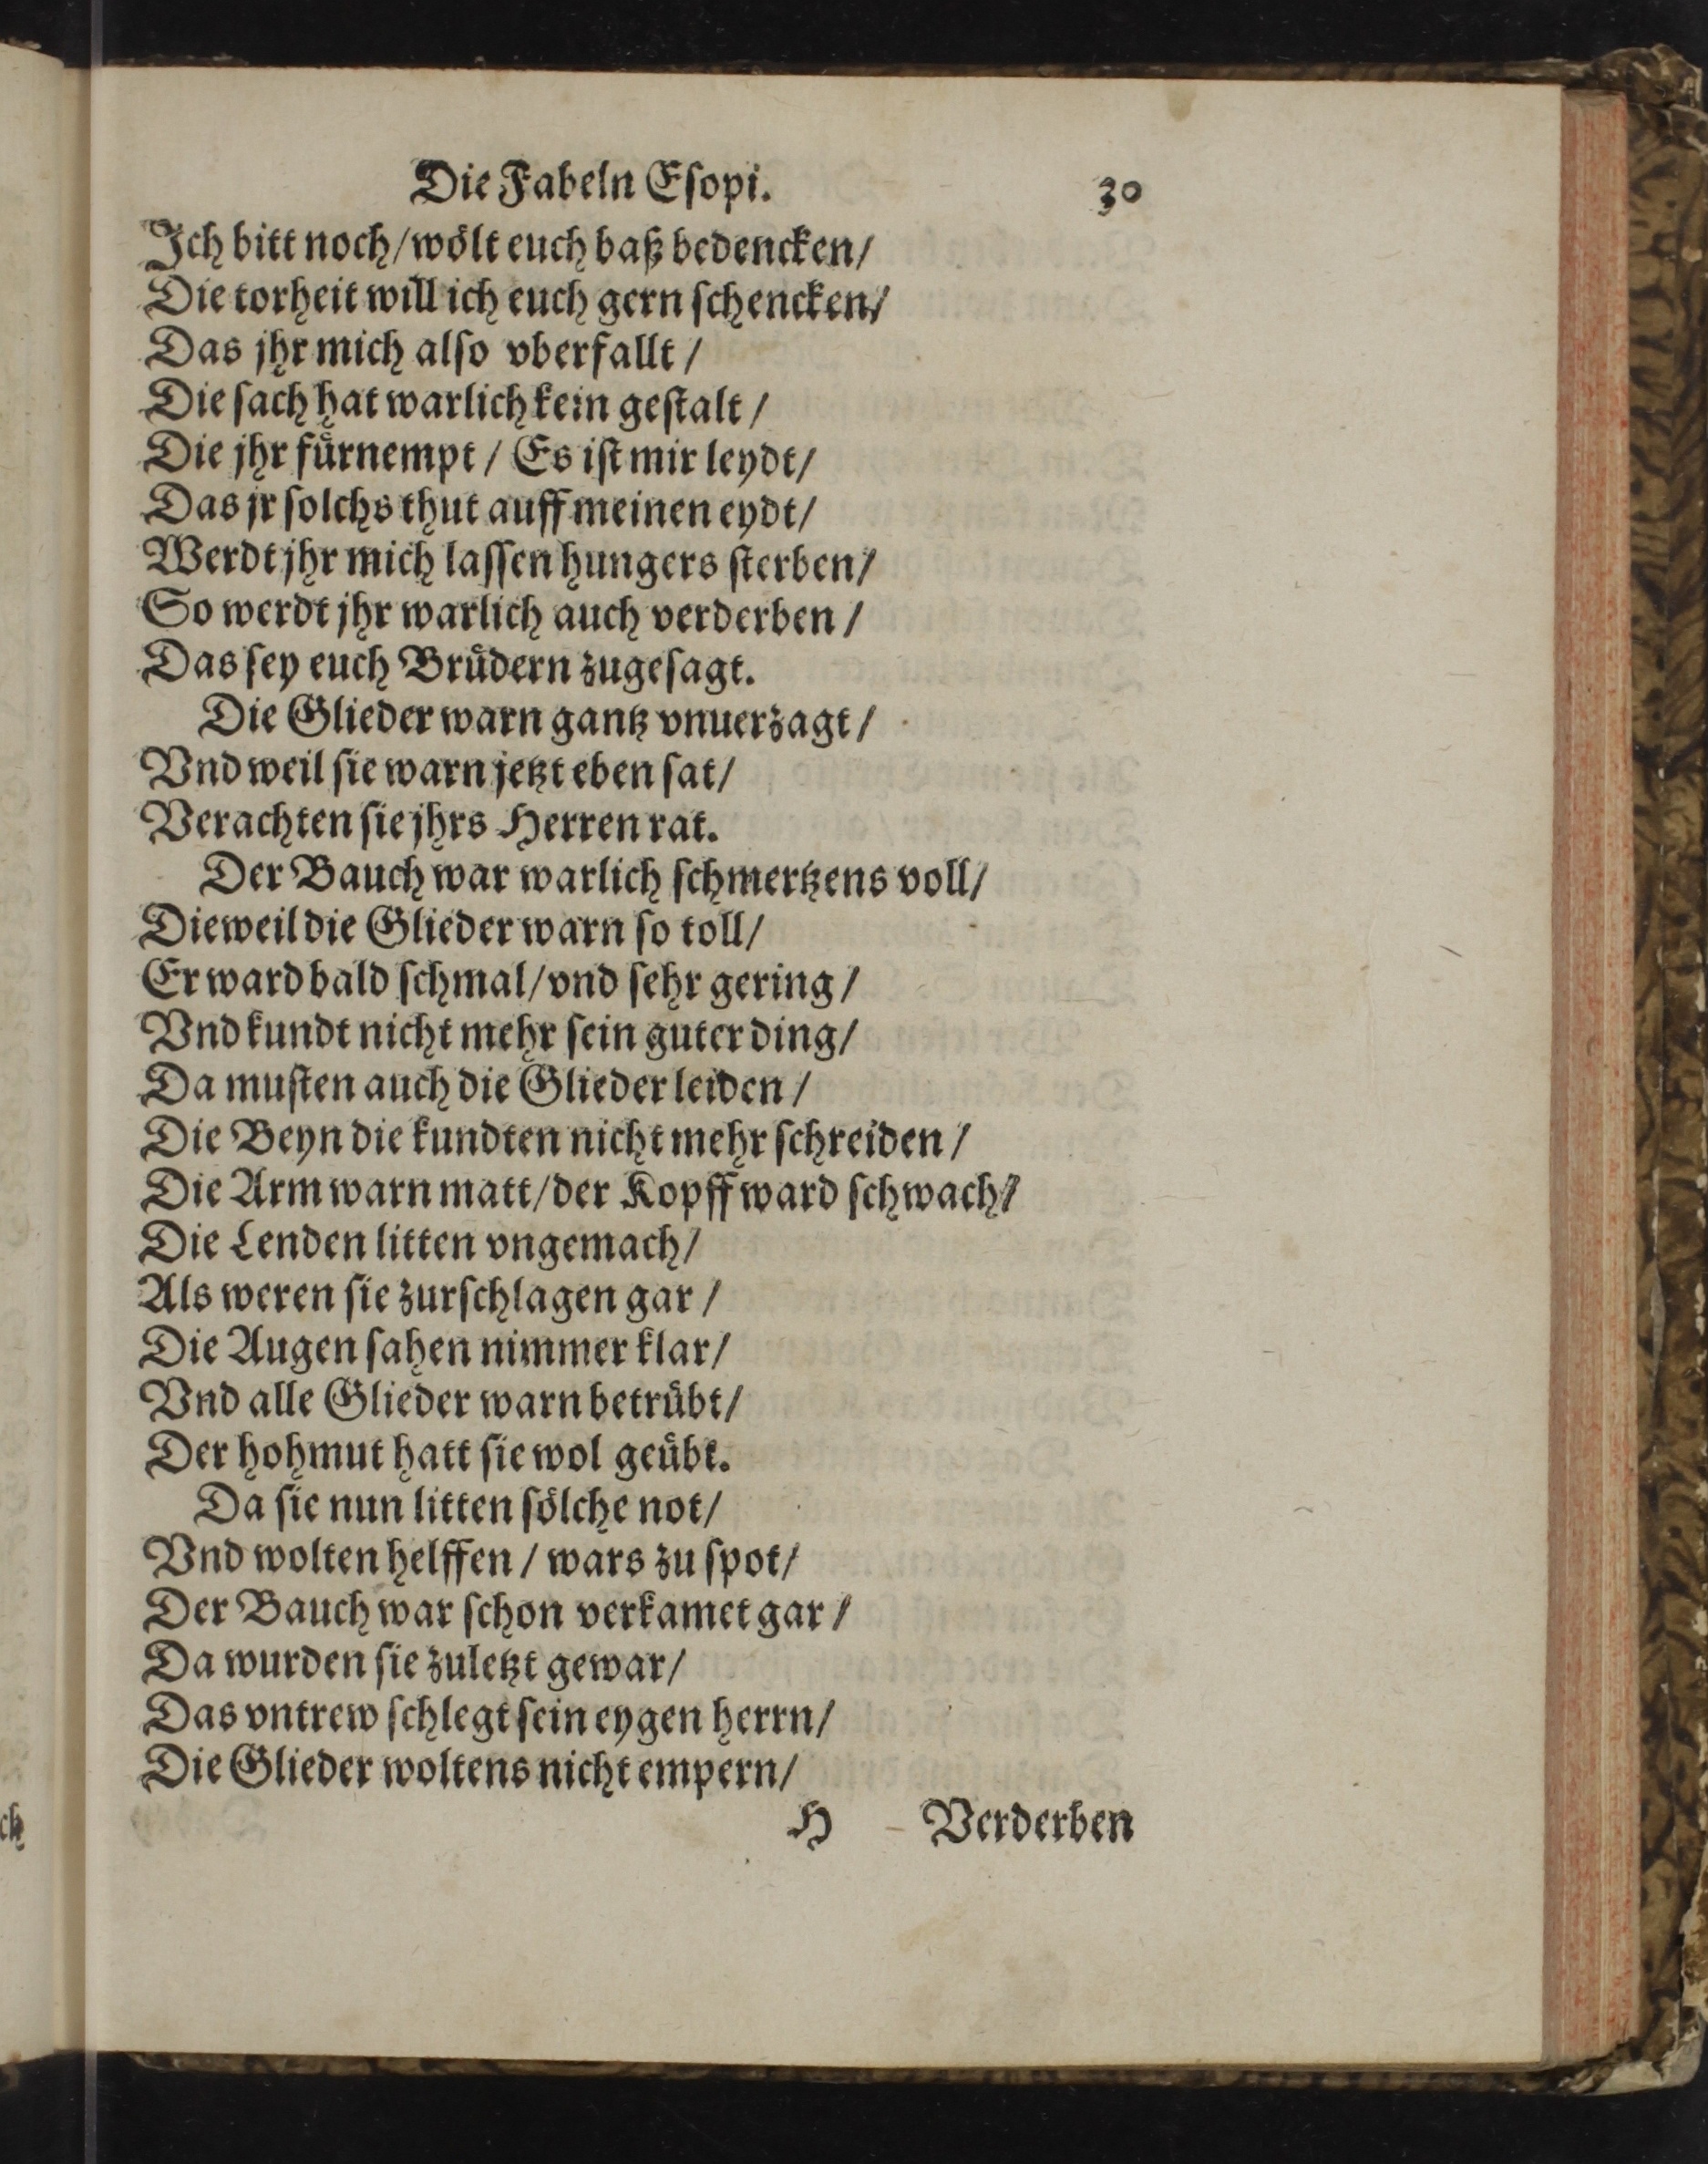 Die Fabeln Eſopi. 30
Ich bitt noch/ woͤlt euch baß bedencken/
Die torheit will ich euch gern ſchencken/
Das jhr mich alſo vberfallt /
Die ſach hat warlich kein geſtalt /
Die jhr fuͤrnempt / Es iſt mir leydt/
Das jr ſolchs thut auff meinen eydt/
Werdt jhr mich laſſen hungers ſterben/
So werdt jhr warlich auch verderben /
Das ſey euch Bruͤdern zugeſagt.
Die Glieder warn gantz vnuerzagt /
Vnd weil ſie warn jetzt eben ſat/
Verachten ſie jhrs Herren rat.
Der Bauch war warlich ſchmertzens voll/
Dieweil die Glieder warn ſo toll/
Er ward bald ſchmal/ vnd ſehr gering /
Vnd kundt nicht mehr ſein guter ding/
Da muſten auch die Glieder leiden /
Die Beyn die kundten nicht mehr ſchreiden /
Die Arm warn matt/ der Kopff ward ſchwach/
Die Lenden litten vngemach/
Als weren ſie zurſchlagen gar /
Die Augen ſahen nimmer klar/
Vnd alle Glieder warn betruͤbt/
Der hohmut hatt ſie wol geuͤbt.
Da ſie nun litten ſoͤlche not/
Vnd wolten helffen / wars zu ſpot/
Der Bauch war ſchon verkamet gar /
Da wurden ſie zuletzt gewar/
Das vntrew ſchlegt ſein eygen herrn/
Die Glieder woltens nicht empern/
H Verderben
ch